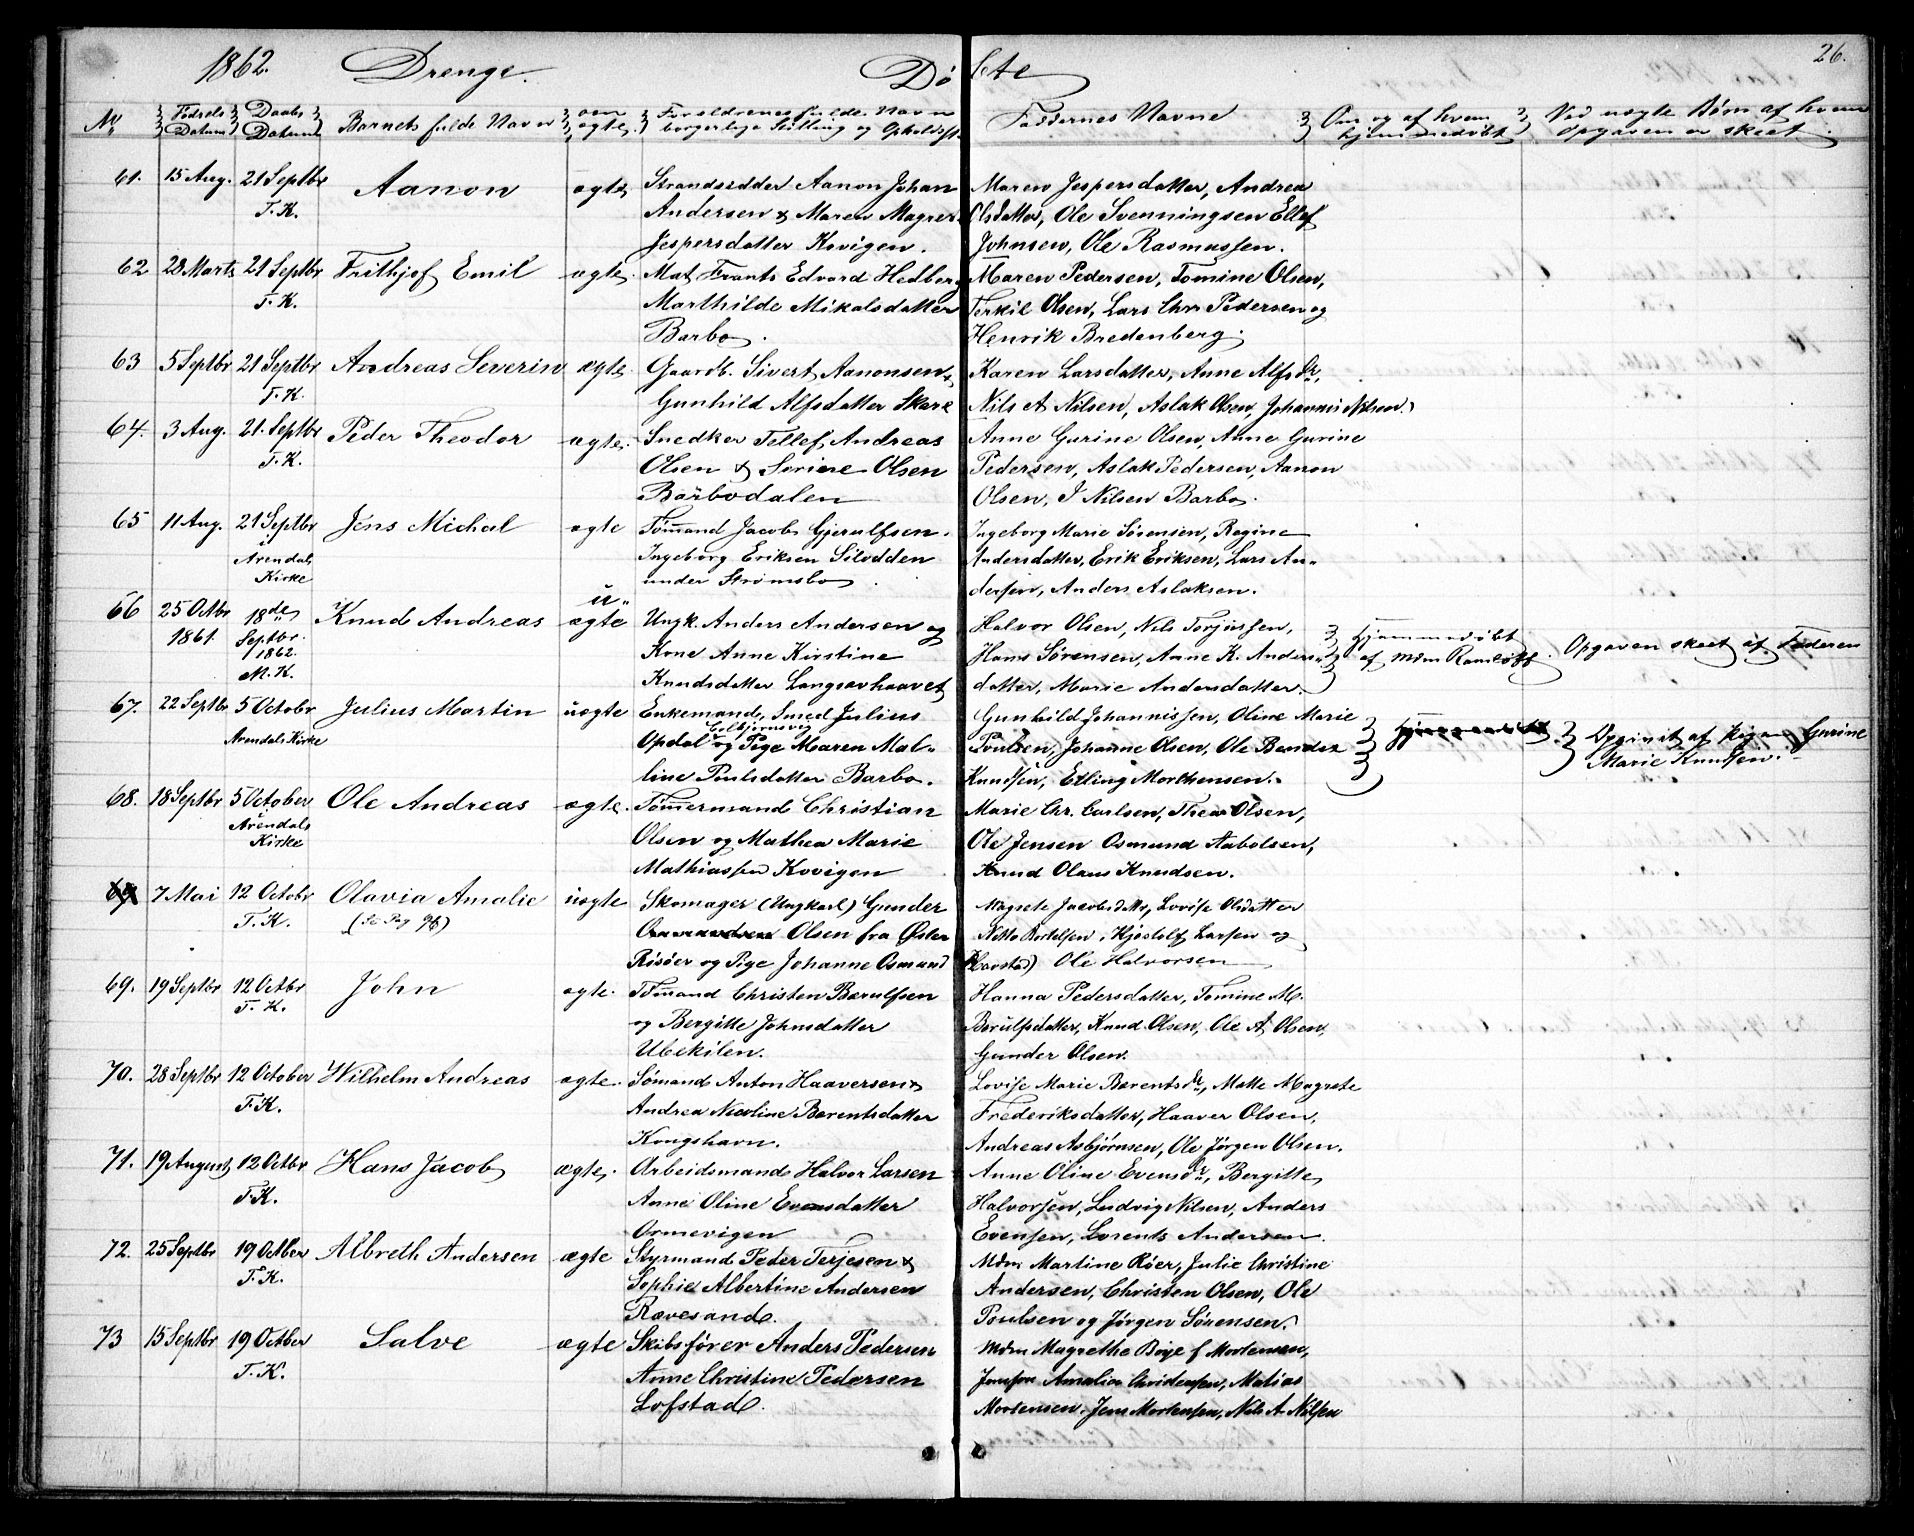 1862. Drenge. Døbte 26.
No Fødsels Datum Daabs Datum Barnets fulde Navn om ægte Forældrenes fulde Navn borgerlige Stilling og Opholdsst Faddernes Navne Om og af hvem hjemmedøbt Ved uægte Børn af hvem Opgaven er skeet.
61. 15 Aug. 21 Septbr T.K. Aanon ægte
Strandsidder Aanon Johan
Andersen & Maren Magret
Jespersdatter Kovigen.
Maren Jespersdatter, Andrea
Olsdatter, Ole Svenningsen Ellef
Johnsen, Ole Rasmussen.
62 28 Marts 21 Septbr T.K. Frithjof Emil ægte
Mat Frants Edvard Hedberg
Marthilde Mikalsdatter
Barbo.
Maren Pedersen, Tomine Olsen,
Terkil Olsen, Lars Chr. Pedersen og
Henrik Bredenberg.
63 5 Septbr 21 Septbr T.K. Andreas Severin ægte
Gaardb. Sivert Aanonsen &
Gunhild Alfsdatter Skare
Karen Larsdatter, Anne Alfsdr,
Nils A Nilsen, Aslak Olsen, Johannis Nilsen.
64. 3 Aug. 21. Septbr T.K. Peder Theodor ægte.
Snedker Tellef Andreas
Olsen & Serine Olsen
Barbodalen
Anne Gurine Olsen, Anne Gurine
Pedersen, Aslak Pedersen, Aanon
Olsen, J Nilsen Barbo.
65 11 Aug. 21 Septbr i Arendals Kirke Jens Michal ægte
Tømmand Jacob Gjerulfsen.
Ingeborg Eriksen Silodden
under Strømsbo
Ingeborg Marie Sørensen, Regine
Andersdatter, Erik Eriksen, Lars An-
dersen, Anders Aslaksen.
66 25 Octbr 1861. 18de Septbr. 1862. M.K. Knud Andreas u-ægte
Ungk. Anders Andersen og
Kone Anne Kirstine
Knudsdatter Langsævhaavet
Halvor Olsen, Nils Torjussen,
Hans Sørensen, Anne K. Anders-
datter, Marie Andersdatter.
Hjemmedøbt
af Mdm Ramløff.
Opgaven skeet af Faderen
67. 22 Septbr 5 Octobr Arendals Kirke Julius Martin uægte
Enkemand, Smed Julius
Colbjørnsvig
Opdal og Pige Maren Mal-
line Poulsdatter Barbo.
Gunhild Johannissen, Oline Marie
Poulsen, Johanne Olsen, Ole Bender
Knudsen, Erling Morthensen.
Opgivet af Pigen Gurine
Marie Knudsen.
68. 18 Septbr 5 October i Arendals Kirke Ole Andreas ægte.
Tømmermand Christian
Olsen og Mathea Marie
Mathiassen Kovigen
Marie Chr. Carlsen, Thea Olsen,
Ole Jensen Osmund Aabolsen,
Knud Olaus Knudsen.
69 7 Mai 12 Octobr T.K. Olavia Amalie (Se Pag 96) uægte
Skomager (Ungkarl) Gunder
Olsen fra Øster
Risøer og Pige Johanne Osmund
Magrete Jacobsdatter, Lovise Olsdatter
Netto Bertelsen, Kjostolf Larsen og
(Havstad) Ole Halvorsen
69. 19 Septbr 12 Octbr T.K. John ægte.
Tømmand Christen Bærulfsen
og Bergitte Johnsdatter
Ubekilen.
Hanna Pedersdatter, Tomine M.
Berulfsdatter, Knud Olsen, Ole A Olsen,
Gunder Olsen.
70. 28 Septbr 12 October T.K. Wilhelm Andreas ægte.
Sømand Anton Haaversen &
Andrea Nicoline Berentsdatter
Kongshavn.
Lovise Marie Bærentsdr, Matte Magrete
Frederiksdatter, Haaver Olsen,
Andreas Asbjørnsen, Ole Jørgen Olsen.
71. 19 August 12 Octbr T.K. Hans Jacob ægte.
Arbeidsmand Halvor Larsen
Anne Oline Evensdatter
Ormevigen
Anne Oline Evensdr, Bergitte
Halvorsen, Ludvig Nilsen, Anders
Evensen, Lorents Andersen.
72. 25 Septbr 19 Octber T.K. Albreth Andersen ægte
Styrmand Peder Terjesen &
Sophie Albertine Andersen
Rævesand.
Mdm Martine Røer, Julie Christine
Andersen, Christen Olsen, Ole
Poulsen og Jørgen Sørensen.
73 15 Septbr 19 Octber T.K. Salve ægte
Skibsfører Anders Pedersen
Anne Christine Pedersen
Lofstad.
Mdm Magrethe Boye f Mortensen,
Jomfru Amalia Christensen, Matias
Mortensen, Jens Mortensen, Nils A Nilsen